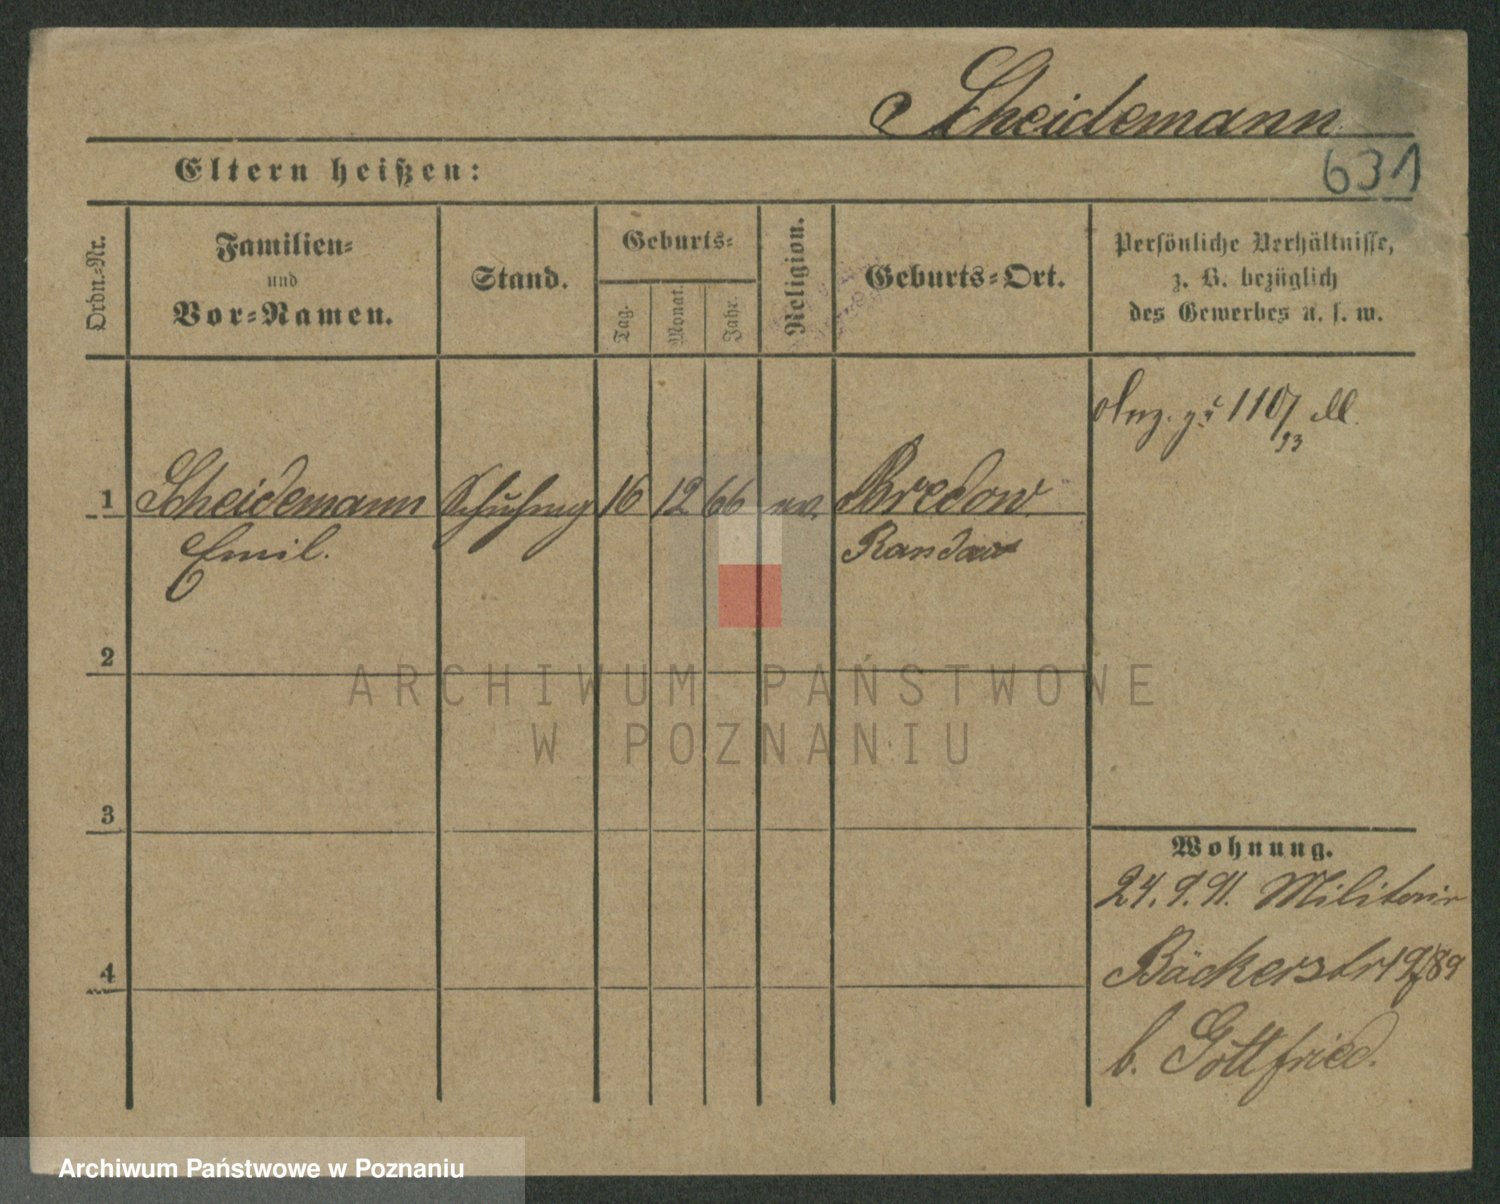 Scheidemann
631
Eltern heißen:
Ordn.-Nr.
Familien-
und
Vor-Namen.
Stand.
Geburts-
Tag.
Monat.
Jahr.
Religion.
Geburts-Ort.
Persönliche Verhältnisse,
z. B. bezüglich
des Gewerbes u. s. w.
1
Scheidemann
Emil.
16
12
66
ev.
Bredow
Randow
110/93
2
3
4
Wohnung.
24. 9. 91. Militair
Bäckerstr 19/89
b. Gottfried.
ARCHIWUM PAŃSTWOWE
W POZNANIU
Archiwum Państwowe w Poznaniu